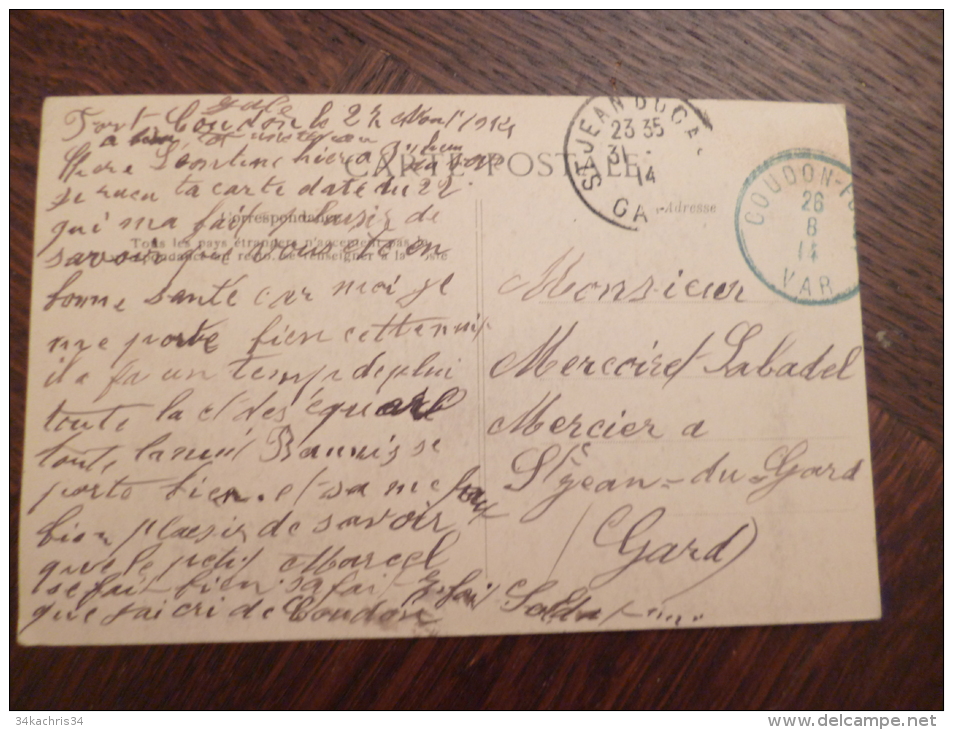 Fort Coudon le 27 Aout 1914
Chere Leontine hier a
je recu ta carte daté du 22
qui ma fait plaisir de
savoir que vous ext en
bonne santé car moi je
me porte bien cette nuit
il a fa un temp de plui
toute la
toute la nuit Bannis se
porte bien. et sa me fait
bien plaisir de savoir
que le petit Marcel
se fait bien sa fait 3 foi
que j'ai cri de Coudon
CARTE POSTALE
Correspondance
Tous les pays étrangers n'acceptent pas la
se renseigner à la
Adresse
ST JEAN DU GA
23 35
31
14
GA
COUDON-F
26
8
14
VAR
Monsieur
Mercoiret Labadel
Mercier a
St Jean-du-Gard
(Gard)
34kachris34
www.delcampe.net